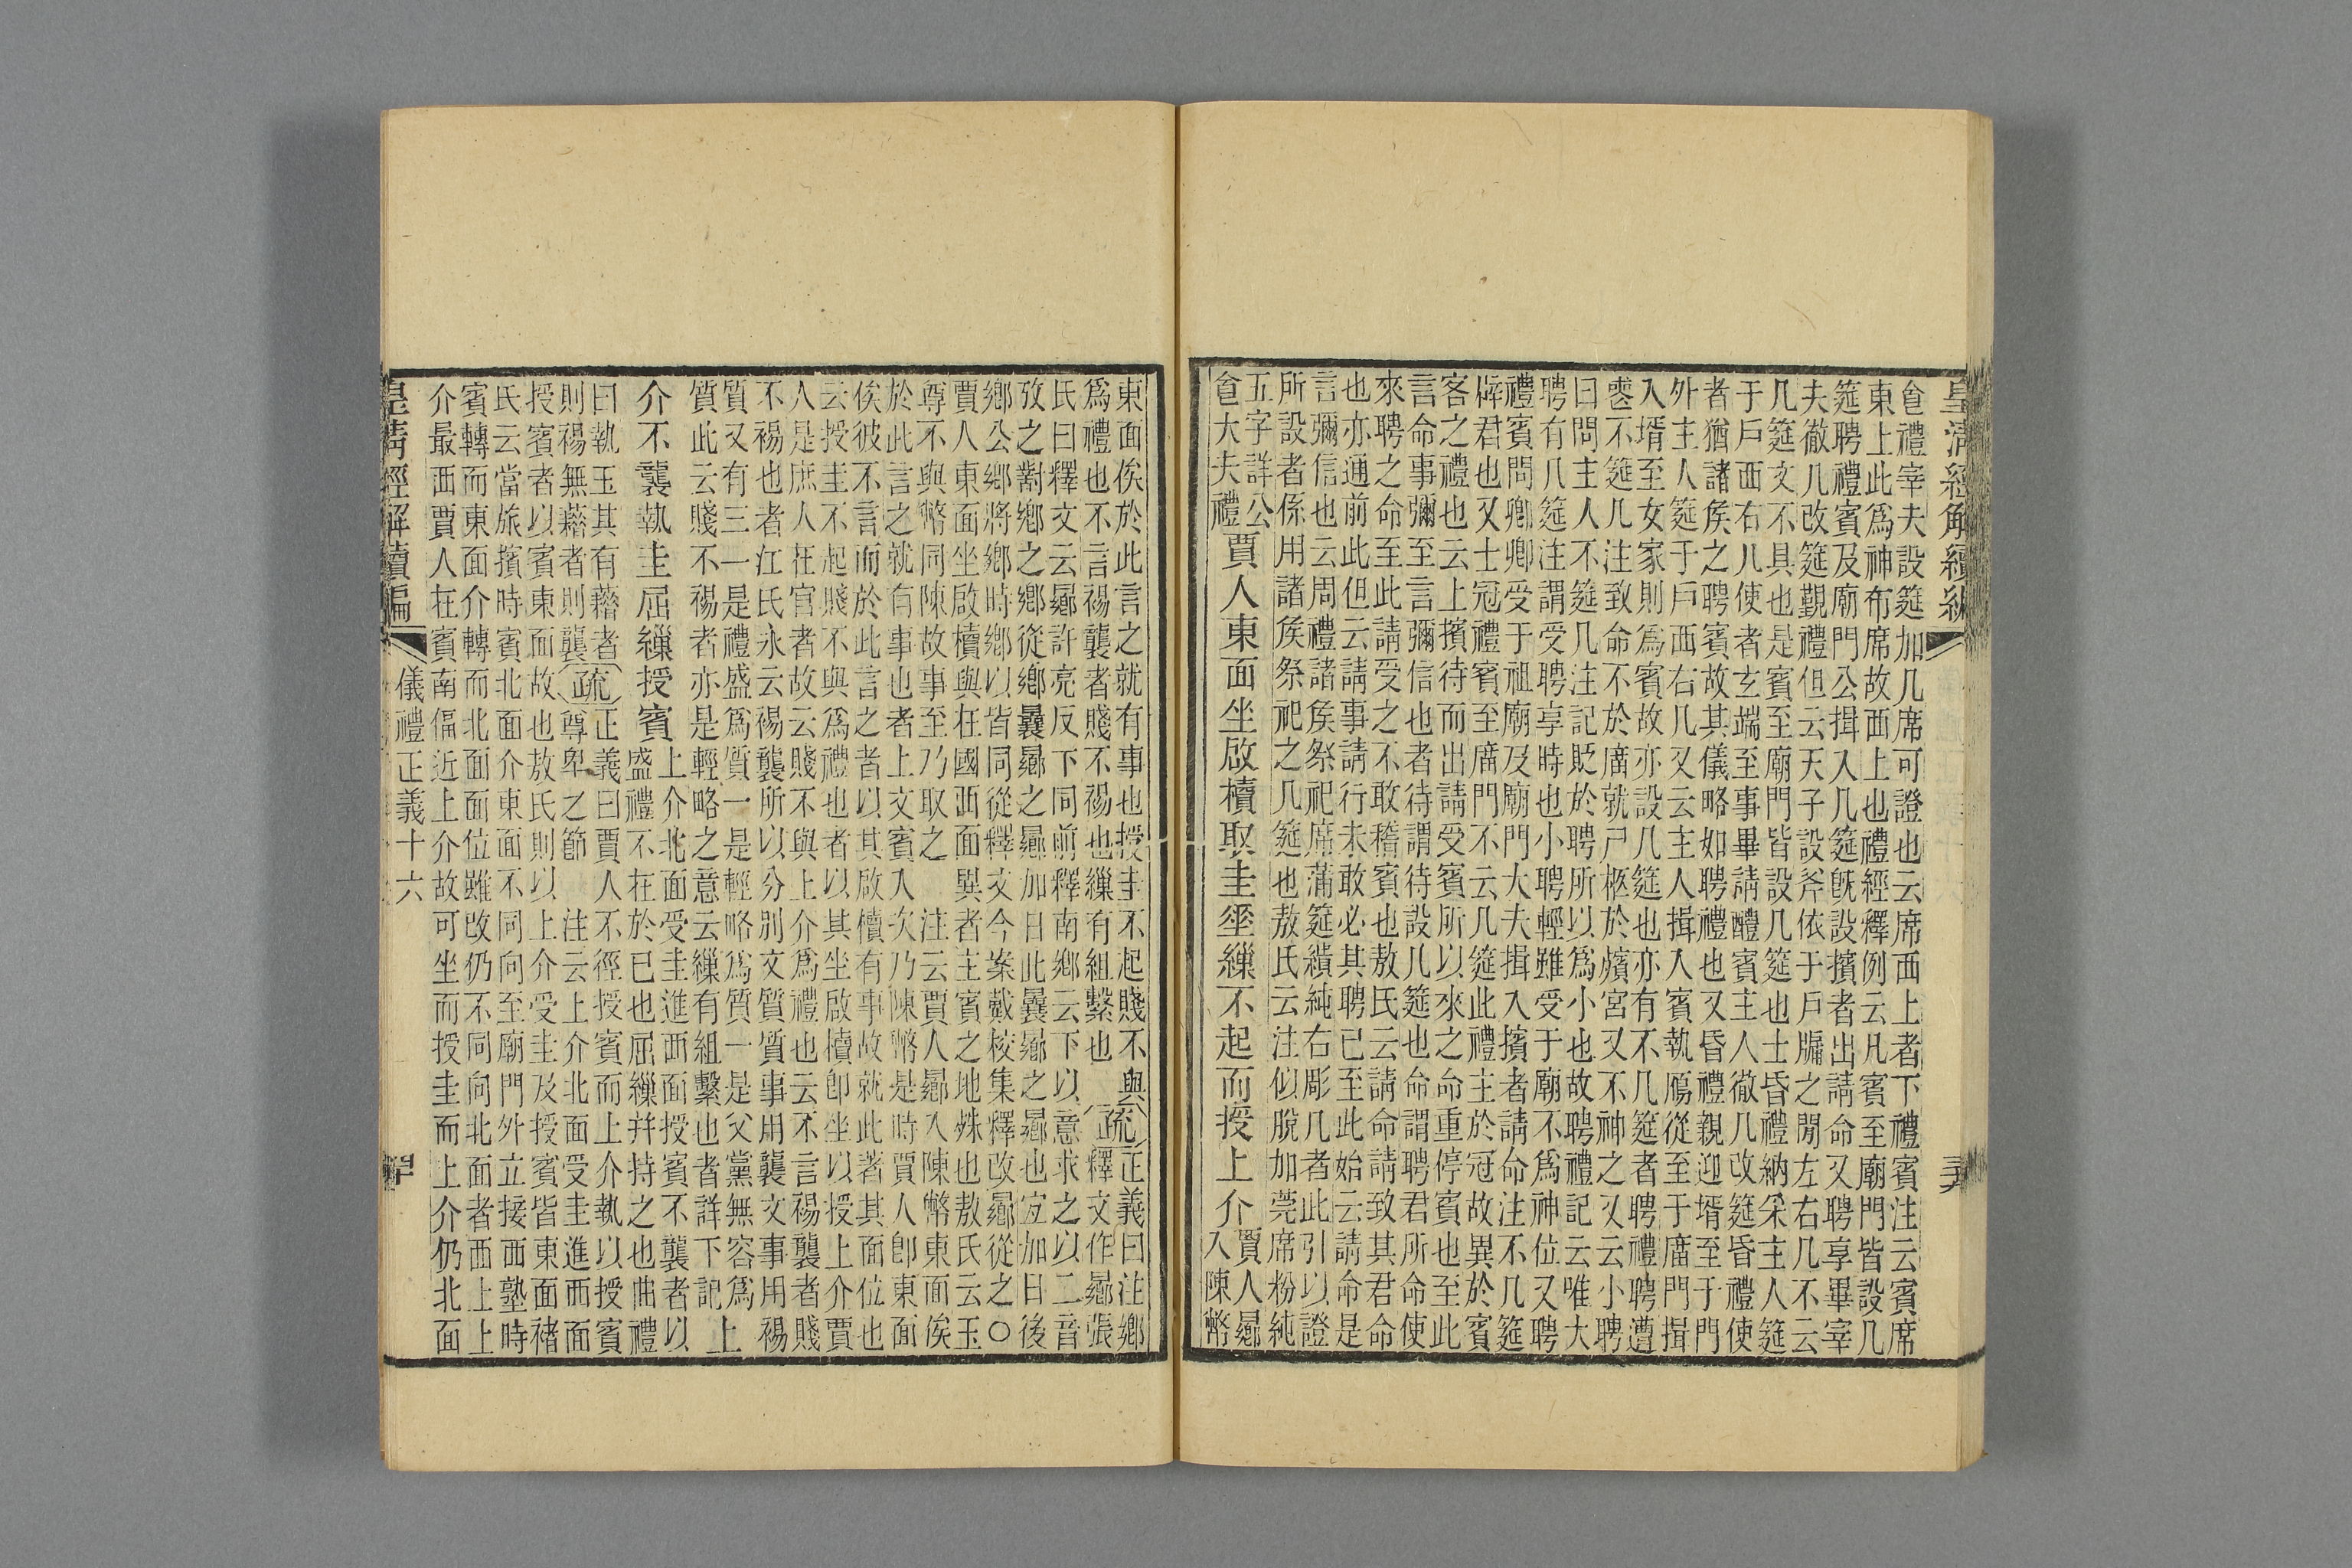 皇清經解續編
食禮宰夫設筵加几席可證也云席西上者下禮賓注云賓席
東上此為神布席故西上也禮經釋例云凡賓至廟門皆設几
筵聘禮賓及廟門公揖入几筵既設擯者出請命又聘享畢宰
夫徹几改筵覲禮但云天子設斧依于戶牖之閒左右几不云
几筵文不具也是賓至廟門皆設几筵也士昏禮納采主人筵
于戶西右几使者玄端至事畢請醴賓主人徹几改筵昏禮使
者猶諸侯之聘賓故其儀略如聘禮也又昏禮親迎壻至于門
外主人筵于戶西右几又云主人揖入賓執鴈從至于廟門揖
入壻至女家則為賓故亦設几筵也亦有不几筵者聘禮聘遭
喪不筵几注致命不於廟就尸柩於殯宮又不神之又云小聘
曰問主人不筵几注記貶於聘所以為小也故聘禮記云唯大
聘有几筵注謂受聘享時也小聘輕雖受于廟不為神位又聘
禮賓問卿卿受于祖廟及廟門大夫揖入擯者請命注不几筵
辟君也又士冠禮賓至廟門不云几筵此禮主於冠故異於賓
客之禮也云上擯待而出請受賓所以來之命重停賓也至此
言命事彌至言彌信也者待謂待設几筵也命謂聘君所命使
來聘之命至此請受之不敢稽賓也敖氏云請命請致其君命
也亦通前此但云請事請行未敢必其聘已至此始云請命是
言彌信也云周禮諸侯祭祀席蒲筵繢純右彫几者此引以證
所設者係用諸侯祭祀之几筵也敖氏云注似脫加莞席粉純
五字詳公
食大夫禮
賈人東面坐啟櫝取圭垂繅不起而授上介
賈人曏
入陳幣
東面俟於此言之就有事也授圭不起賤不與
為禮也不言裼襲者賤不裼也繅有組繫也
疏
正義曰注鄉
釋文作曏張
氏曰釋文云曏許亮反下同前釋南鄉云下以意求之以二音
攷之對鄉之鄉從鄉曩曏之曏加日此曩曏之曏也宜加日後
鄉公鄉將鄉時鄉以皆同從釋文今案戴校集釋改曏從之○
賈人東面坐啟櫝與在國西面異者主賓之地殊也敖氏云玉
尊不與幣同陳故事至乃取之 注云賈人曏入陳幣東面俟
於此言之就有事也者上文賓入次乃陳幣是時賈人即東面
俟彼不言而於此言之者以其啟櫝有事故就此著其面位也
云授圭不起賤不與為禮也者以其坐啟櫝即坐以授上介賈
人是庶人在官者故云賤不與上介為禮也云不言裼襲者賤
不裼也者江氏永云裼襲所以分別文質質事用襲文事用裼
質又有三一是禮盛為質一是輕略為質一是父黨無容為
質此云賤不裼者亦是輕略之意云繅有組繫也者詳下記
上
介不襲執圭屈繅授賓
上介北面受圭進西面授賓不襲者以
盛禮不在於已也屈繅并持之也曲禮
曰執玉其有藉者
則裼無藉者則襲
疏
正義曰賈人不徑授賓而上介執以授賓
尊卑之節 注云上介北面受圭進西面
授賓者以賓東面故也敖氏則以上介受圭及授賓皆東面褚
氏云當旅擯時賓北面介東面不同向至廟門外立接西塾時
賓轉而東面介轉而北面面位雖改仍不同向北面者西上上
介最西賈人在賓南偪近上介故可坐而授圭而上介仍北面
皇清經解續編
儀禮正義十六